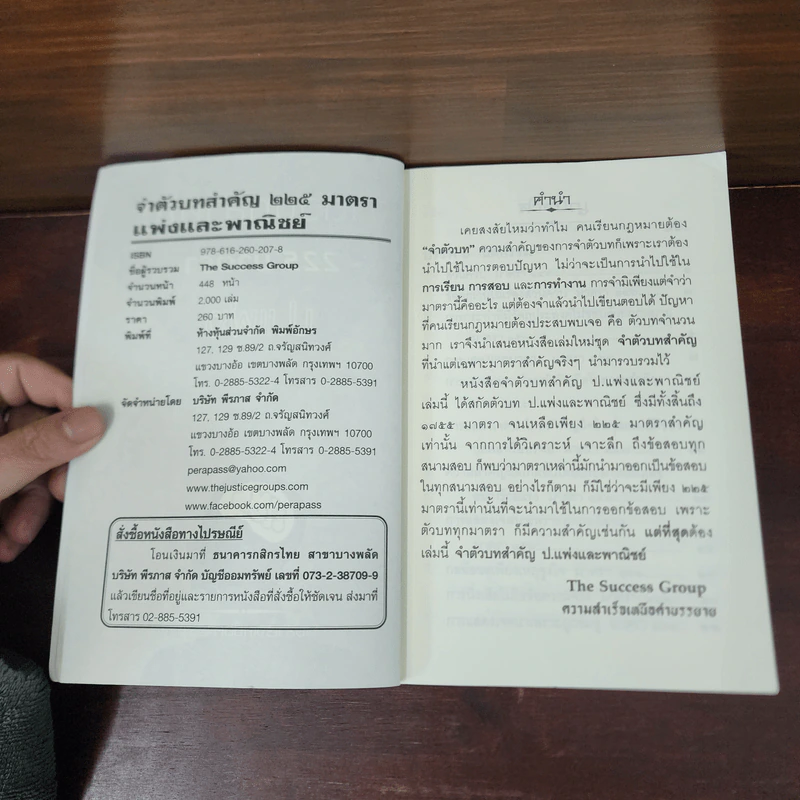 จำตัวบทสำคัญ ๒๒๕ มาตรา
แพ่งและพาณิชย์
ISBN 978-616-260-207-8
ชื่อผู้รวบรวม The Success Group
จำนวนหน้า 448 หน้า
จำนวนพิมพ์ 2,000 เล่ม
ราคา 260 บาท
พิมพ์ที่ ห้างหุ้นส่วนจำกัด พิมพ์อักษร
127, 129 ซ.89/2 ถ.จรัญสนิทวงศ์
แขวงบางอ้อ เขตบางพลัด กรุงเทพฯ 10700
โทร. 0-2885-5322-4 โทรสาร 0-2885-5391
จัดจำหน่ายโดย บริษัท พีรภาส จำกัด
127, 129 ซ.89/2 ถ.จรัญสนิทวงศ์
แขวงบางอ้อ เขตบางพลัด กรุงเทพฯ 10700
โทร. 0-2885-5322-4 โทรสาร 0-2885-5391
perapass@yahoo.com
www.thejusticegroups.com
www.facebook.com/perapass
สั่งซื้อหนังสือทางไปรษณีย์
โอนเงินมาที่ ธนาคารกสิกรไทย สาขาบางพลัด
บริษัท พีรภาส จำกัด บัญชีออมทรัพย์ เลขที่ 073-2-38709-9
แล้วเขียนชื่อที่อยู่และรายการหนังสือที่สั่งซื้อให้ชัดเจน ส่งมาที่
โทรสาร 02-885-5391
คำนำ
เคยสงสัยไหมว่าทำไม คนเรียนกฎหมายต้อง
“จำตัวบท” ความสำคัญของการจำตัวบทก็เพราะเราต้อง
นำไปใช้ในการตอบปัญหา ไม่ว่าจะเป็นการนำไปใช้ใน
การเรียน การสอบ และการทำงาน การจำมิเพียงแต่จำว่า
มาตรานี้คืออะไร แต่ต้องจำแล้วนำไปเขียนตอบได้ ปัญหา
ที่คนเรียนกฎหมายต้องประสบพบเจอ คือ ตัวบทจำนวน
มาก เราจึงนำเสนอหนังสือเล่มใหม่ชุด จำตัวบทสำคัญ
ที่นำแต่เฉพาะมาตราสำคัญจริงๆ นำมารวบรวมไว้
หนังสือจำตัวบทสำคัญ ป.แพ่งและพาณิชย์
เล่มนี้ ได้สกัดตัวบท ป.แพ่งและพาณิชย์ ซึ่งมีทั้งสิ้นถึง
๑๗๕๕ มาตรา จนเหลือเพียง ๒๒๕ มาตราสำคัญ
เท่านั้น จากการได้วิเคราะห์ เจาะลึก ถึงข้อสอบทุก
สนามสอบ ก็พบว่ามาตราเหล่านี้มักนำมาออกเป็นข้อสอบ
ในทุกสนามสอบ อย่างไรก็ตาม ก็มิใช่ว่าจะมีเพียง ๒๒๕
มาตรานี้เท่านั้นที่จะนำมาใช้ในการออกข้อสอบ เพราะ
ตัวบททุกมาตรา ก็มีความสำคัญเช่นกัน แต่ที่สุดต้อง
เล่มนี้ จำตัวบทสำคัญ ป.แพ่งและพาณิชย์
The Success Group
ความสำเร็จเหนือคำบรรยาย